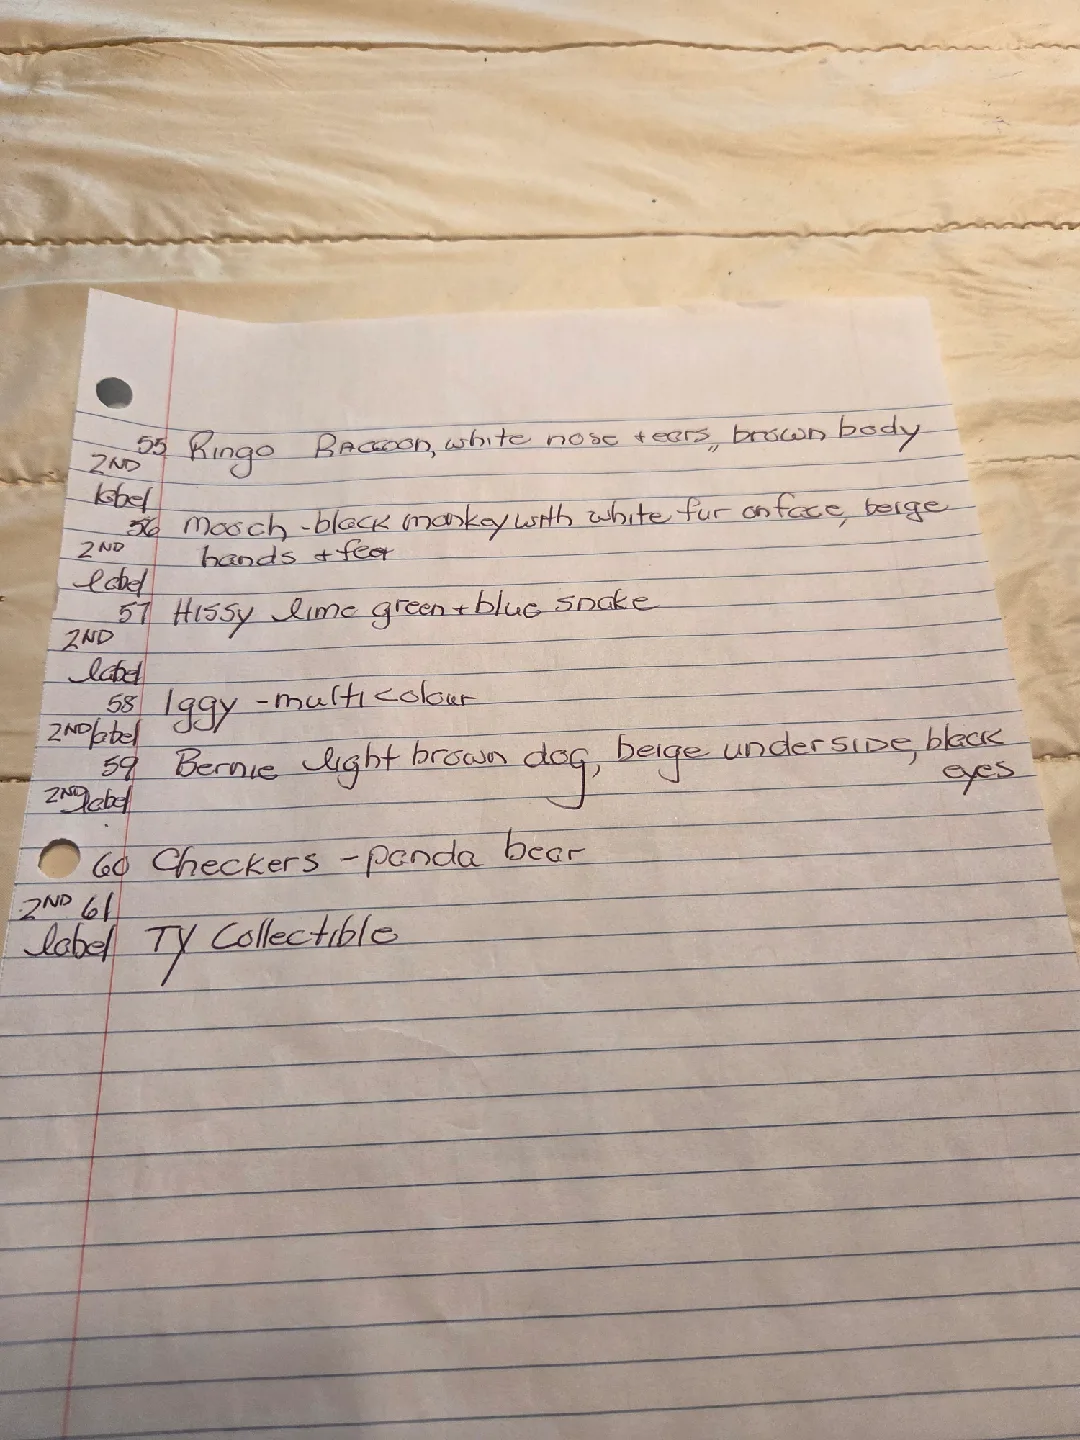 55 Ringo Raccoon, white nose + ears, brown body
2ND
label
56 Mooch - black monkey with white fur on face, beige
2ND hands + feet
label
57 Hissy lime green + blue snake
2ND
label
58 Iggy - multicolour
2ND label
59 Bernie light brown dog, beige underside, black
eyes
2ND label
60 Checkers - panda bear
2ND 61
label TY Collectible